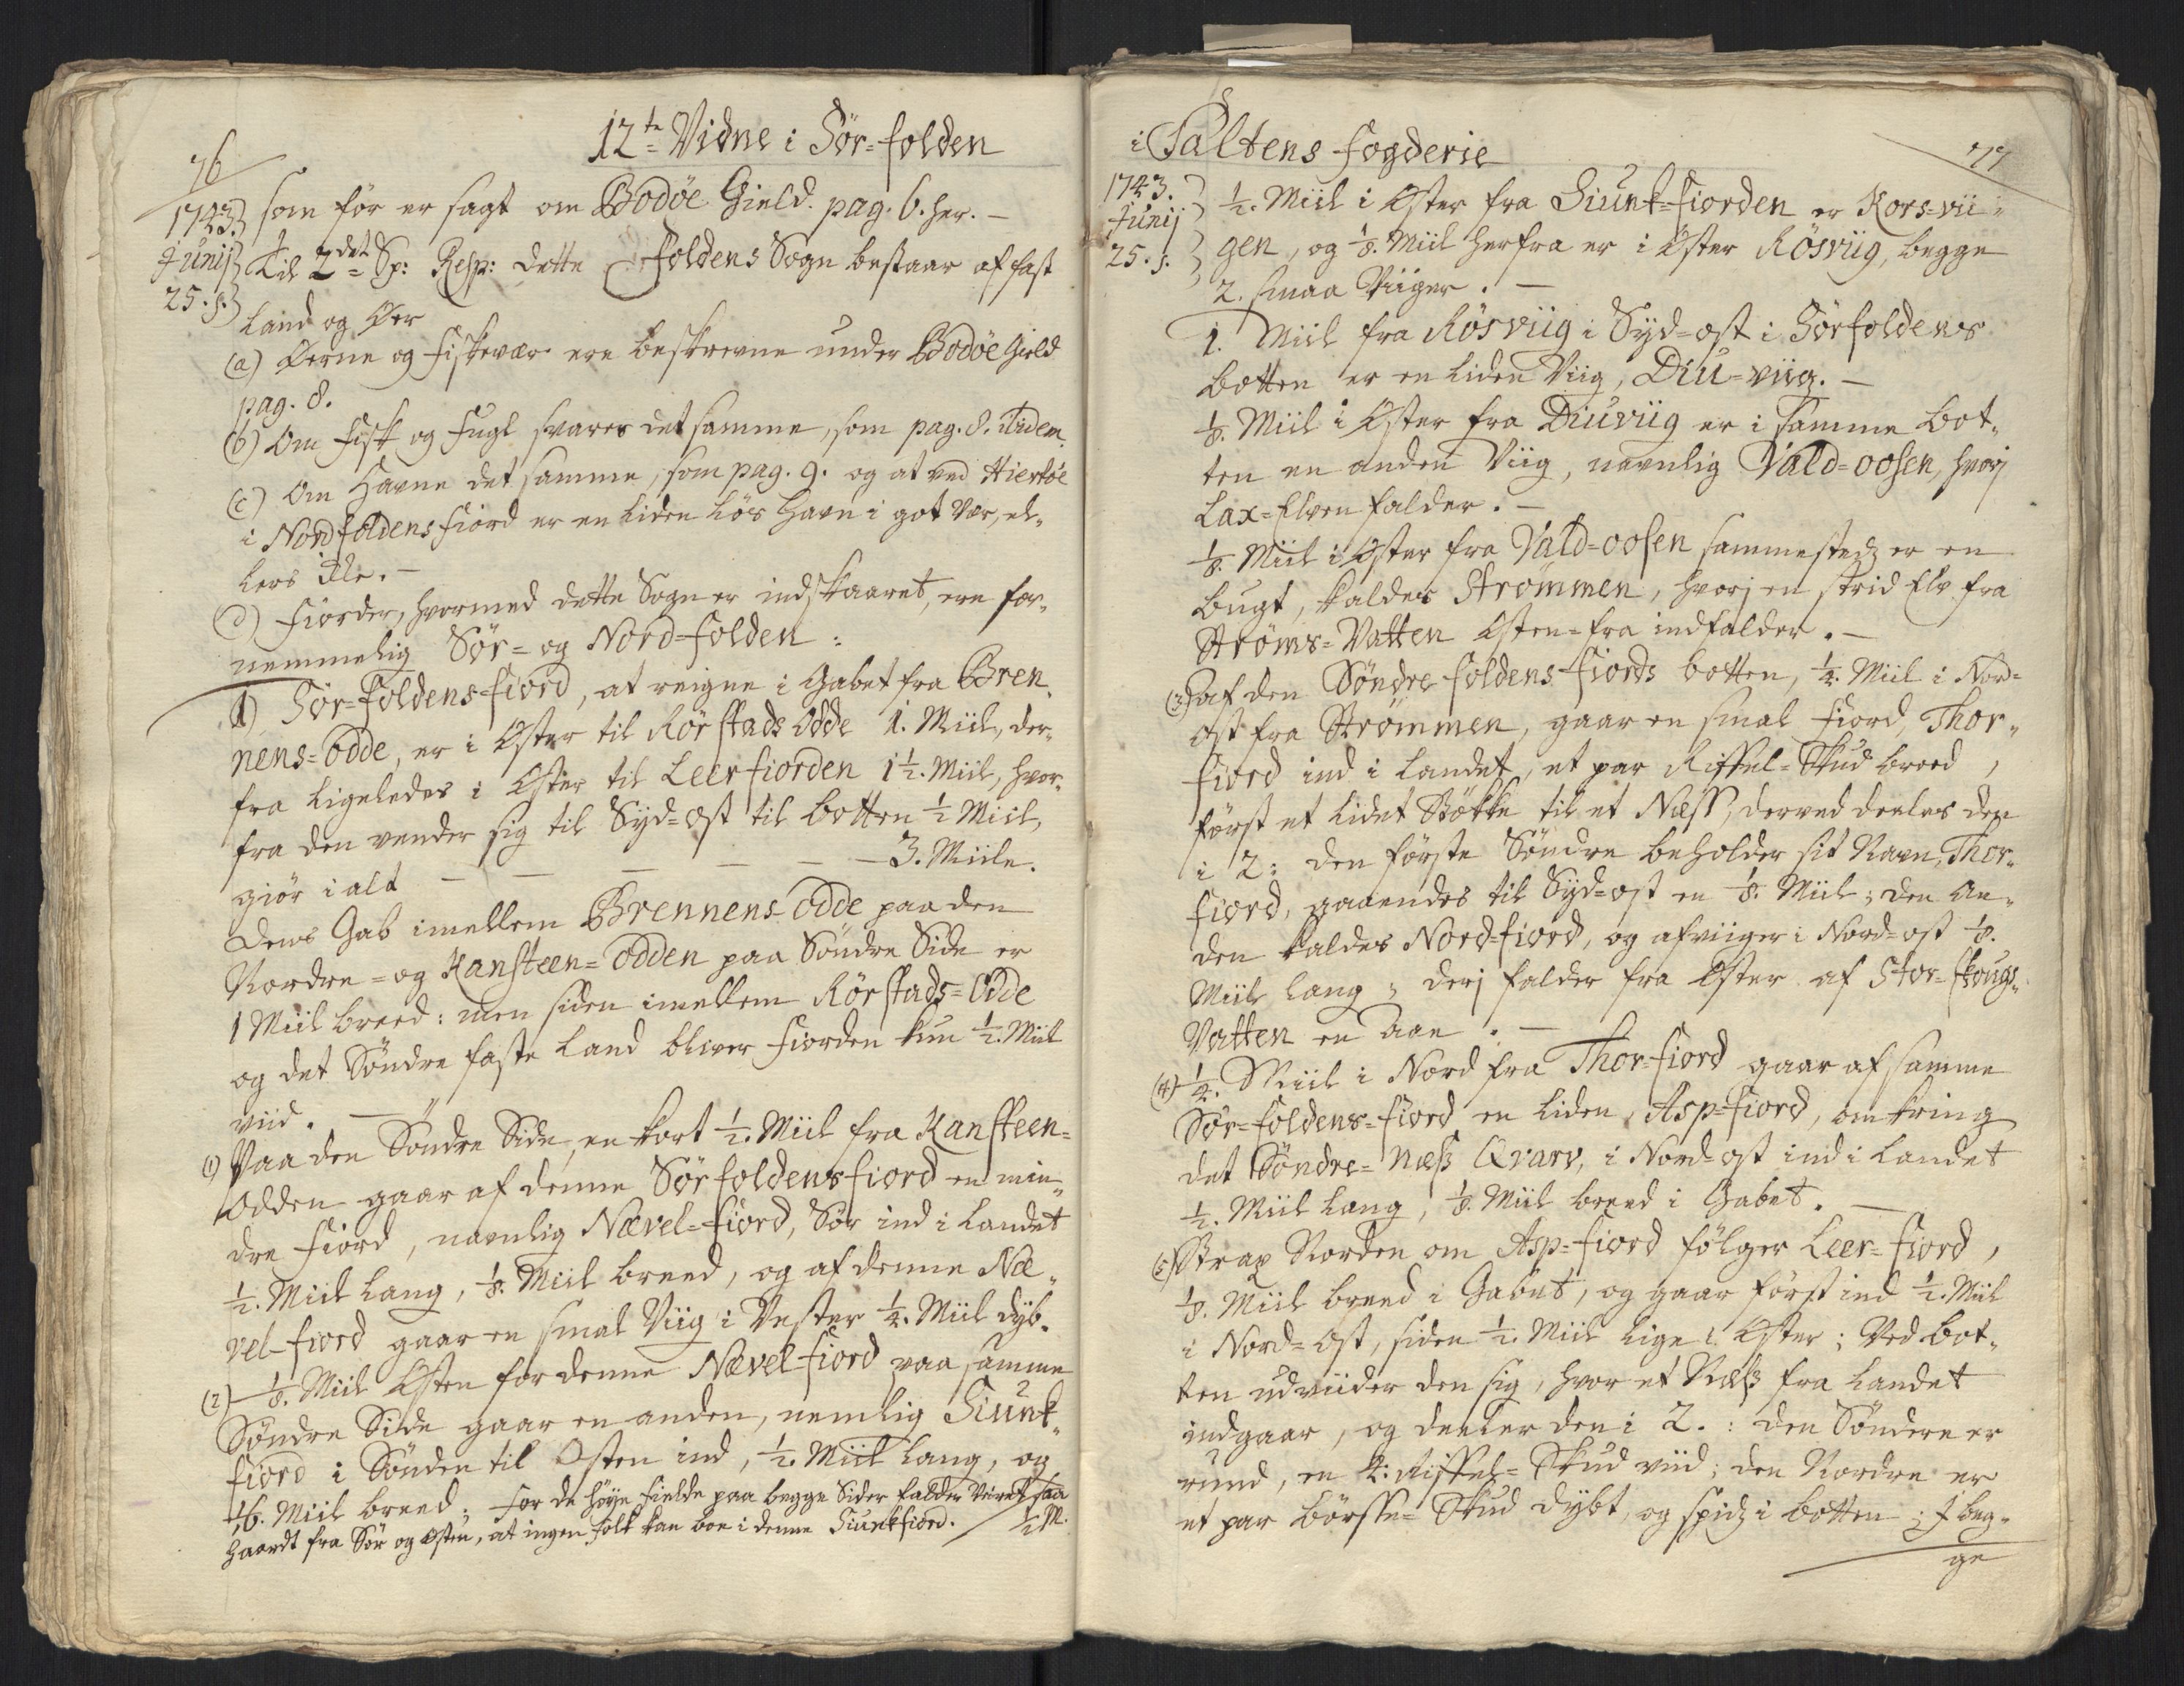 76
12te Vidne i Sør=folden
1743.
Junij
25. s.
som før er sagt om Bodøe Gield. pag. 6. her. —
Til 2det Sp: Resp: dette Foldens Sogn bestaar af fast
Land og Øer
(a) Øerne og fiskevær ere beskrevne under Bodøe Gield
pag. 8.
(b) Om fisk og fugl svares det samme, som pag. 8. ibidem.
(c) Om Havne det samme, som pag. 9. og at ved Hiertøe
i Nordfoldens fiord er en liden løs Havn i got Vær, el„
lers ikke. —
(d) Fiorder, hvormed dette Sogn er indskaaret, ere for„
nemmelig Sør= og Nord=folden:
1) Sør=foldens=fiord, at reigne i Gabet fra Bren„
nens=odde, er i Øster til Rørstads Odde 1. Miil, der„
fra ligeledes i Øster til Leerfiorden 1½. Miil, hvor„
fra den vender sig til Syd=ost til botten ½ Miil,
giør i alt — — — — — 3. Miile.
Dens Gab imellem Brennens=odde paa den
Nordre= og Kansteen=odden paa Søndre Side er
1 Miil breed: men siden imellem Rørstads=Odde
og det Søndre faste Land bliver fiorden kun ½. Miil
viid. —
(1) Paa den Søndre Side, en kort ½. Miil fra Kansteen=
odden gaar af denne Sørfoldensfiord en min„
dre fiord, navnlig Nævel=fiord, Sør ind i Landet
½. Miil lang, ⅛. Miil breed, og af denne Næ„
vel-fiord gaar en smal Viig i Vester ¼. Miil dyb.
(2) ⅛. Miil Østen for denne Nævel-fiord paa samme
Søndre Side gaar en anden, nemlig Siunk„
fiord i Sønden til Osten ind, ½. Miil lang, og
1/16. Miil breed. For de høye fielde paa begge Sider falder Veiret saa
haardt fra Sør og Østen, at ingen folk kan boe i denne Siunkfiord. ½ M.
i Saltens fogderie
77
1743.
Junij
25. s.
½. Miil i Øster fra Siunk=fiorden er Kors=vii„
gen, og ⅛. Miil herfra er i Øster Røsviig, begge
2. smaa Viiger. —
1. Miil fra Røsviig i Syd=ost i Sørfoldens
botten er en liden Viig, Diu=viig. —
⅛. Miil i Øster fra Diuviig er i samme bot„
ten en anden Viig, navnlig Vald=oosen, hvorj
Lax=Elven falder. —
⅛. Miil i Øster fra Vald=oosen sammesteds er en
bugt, kaldes Strømmen, hvorj en strid Elv fra
Strøms=Vatten Østen=fra indfalder. —
(3) af den Søndre foldens fiords botten, ¼. Miil i Nord=
ost fra Strømmen, gaar en smal fiord, Thor„
fiord ind i Landet, et par Riffel=Skud breed,
først et lidet Støkke til et Næss, derved deeles den
i 2: den første Søndre beholder sit Navn, Thor„
fiord, gaaendes til Syd=ost en ⅛. Miil; den an„
den kaldes Nord=fiord, og afviiger i Nord=ost ⅛.
Miil lang, derj falder fra Øster af Stor=skougs„
Vatten en aae. —
(4) ½. Miil i Nord fra Thor=fiord gaar af samme
Sør=foldens=fiord en liden, Asp=fiord, omkring
det Søndre= Næss Qvarv, i Nord=ost ind i Landet
½. Miil lang, ⅛. Miil breed i Gabet. —
(5) Strax Norden om Asp=fiord følger Leer=fiord,
⅛. Miil breed i Gabet, og gaar først ind ½. Miil
i Nord=ost, siden ½. Miil lige i Øster; Ved bot„
ten udviider den sig, hvor et Næss fra Landet
indgaar, og deeler den i 2.: den Søndere er
rund, en k: Riffel= Skud viid; den Nordre er
et par børsse= Skud dybt, og spids i botten; J beg„
ge